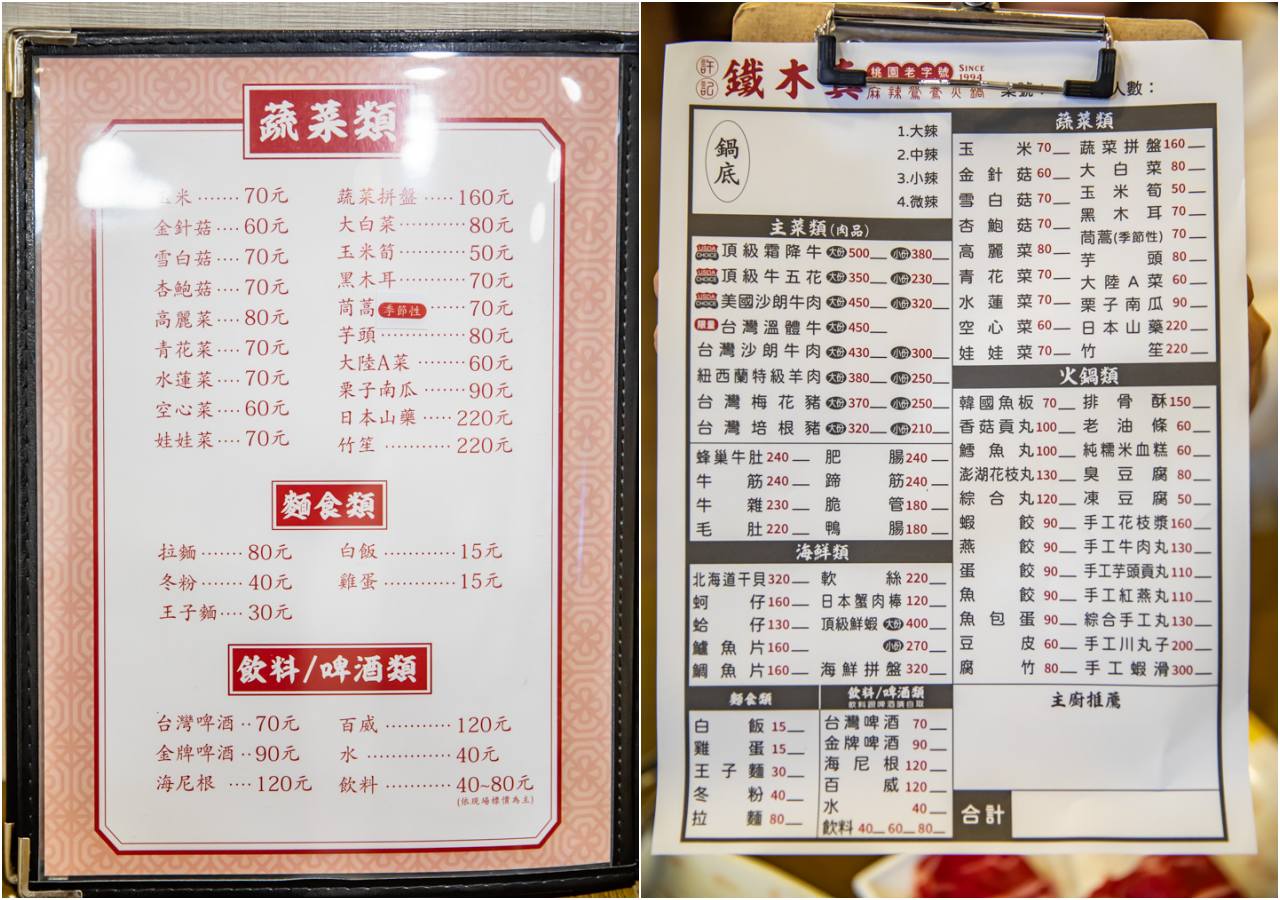 蔬菜類
玉米 ······· 70元
金針菇 ···· 60元
雪白菇 ···· 70元
杏鮑菇 ···· 70元
高麗菜 ···· 80元
青花菜 ···· 70元
水蓮菜 ···· 70元
空心菜 ···· 60元
娃娃菜 ···· 70元
蔬菜拼盤 ····· 160元
大白菜 ········· 80元
玉米筍 ········· 50元
黑木耳 ········· 70元
茼蒿 季節性 ····· 70元
芋頭 ············ 80元
大陸A菜 ······· 60元
栗子南瓜 ······· 90元
日本山藥 ····· 220元
竹笙 ·········· 220元
麵食類
拉麵 ······· 80元
冬粉 ······· 40元
王子麵 ···· 30元
白飯 ············ 15元
雞蛋 ············ 15元
飲料/啤酒類
台灣啤酒 ·· 70元
金牌啤酒 ·· 90元
海尼根 ···· 120元
百威 ··········· 120元
水 ·············· 40元
飲料 ··········· 40~80元
(依現場標價為主)
許記 鐵木真 桃園老字號 SINCE 1994
麻辣鴛鴦火鍋
人數：
鍋底
1.大辣
2.中辣
3.小辣
4.微辣
主菜類(肉品)
USDA CHOICE 頂級霜降牛 大份 500 小份 380
USDA CHOICE 頂級牛五花 大份 350 小份 230
USDA CHOICE 美國沙朗牛肉 大份 450 小份 320
限量 台灣溫體牛 大份 450
台灣沙朗牛肉 大份 430 小份 300
紐西蘭特級羊肉 大份 380 小份 250
台灣梅花豬 大份 370 小份 250
台灣培根豬 大份 320 小份 210
蜂巢牛肚 240 肥腸 240
牛筋 240 蹄筋 240
牛雜 230 脆管 180
毛肚 220 鴨腸 180
海鮮類
北海道干貝 320 軟絲 220
蚵仔 160 日本蟹肉棒 120
蛤仔 130 頂級鮮蝦 大份 400
鱸魚片 160 小份 270
鯛魚片 160 海鮮拼盤 320
麵食類
白飯 15
雞蛋 15
王子麵 30
冬粉 40
拉麵 80
飲料/啤酒類
飲料跟啤酒請自取
台灣啤酒 70
金牌啤酒 90
海尼根 120
百威 120
水 40
飲料 40 60 80
蔬菜類
玉米 70 蔬菜拼盤 160
金針菇 60 大白菜 80
雪白菇 70 玉米筍 50
杏鮑菇 70 黑木耳 70
高麗菜 80 茼蒿(季節性) 70
青花菜 70 芋頭 80
水蓮菜 70 大陸A菜 60
空心菜 60 栗子南瓜 90
娃娃菜 70 日本山藥 220
竹笙 220
火鍋類
韓國魚板 70 排骨酥 150
香菇貢丸 100 老油條 60
鱈魚丸 100 純糯米血糕 60
澎湖花枝丸 130 臭豆腐 80
綜合丸 120 凍豆腐 50
蝦餃 90 手工花枝漿 160
燕餃 90 手工牛肉丸 130
蛋餃 90 手工芋頭貢丸 110
魚餃 90 手工紅燕丸 110
魚包蛋 90 綜合手工丸 130
豆皮 60 手工川丸子 200
腐竹 80 手工蝦滑 300
主廚推薦
合計